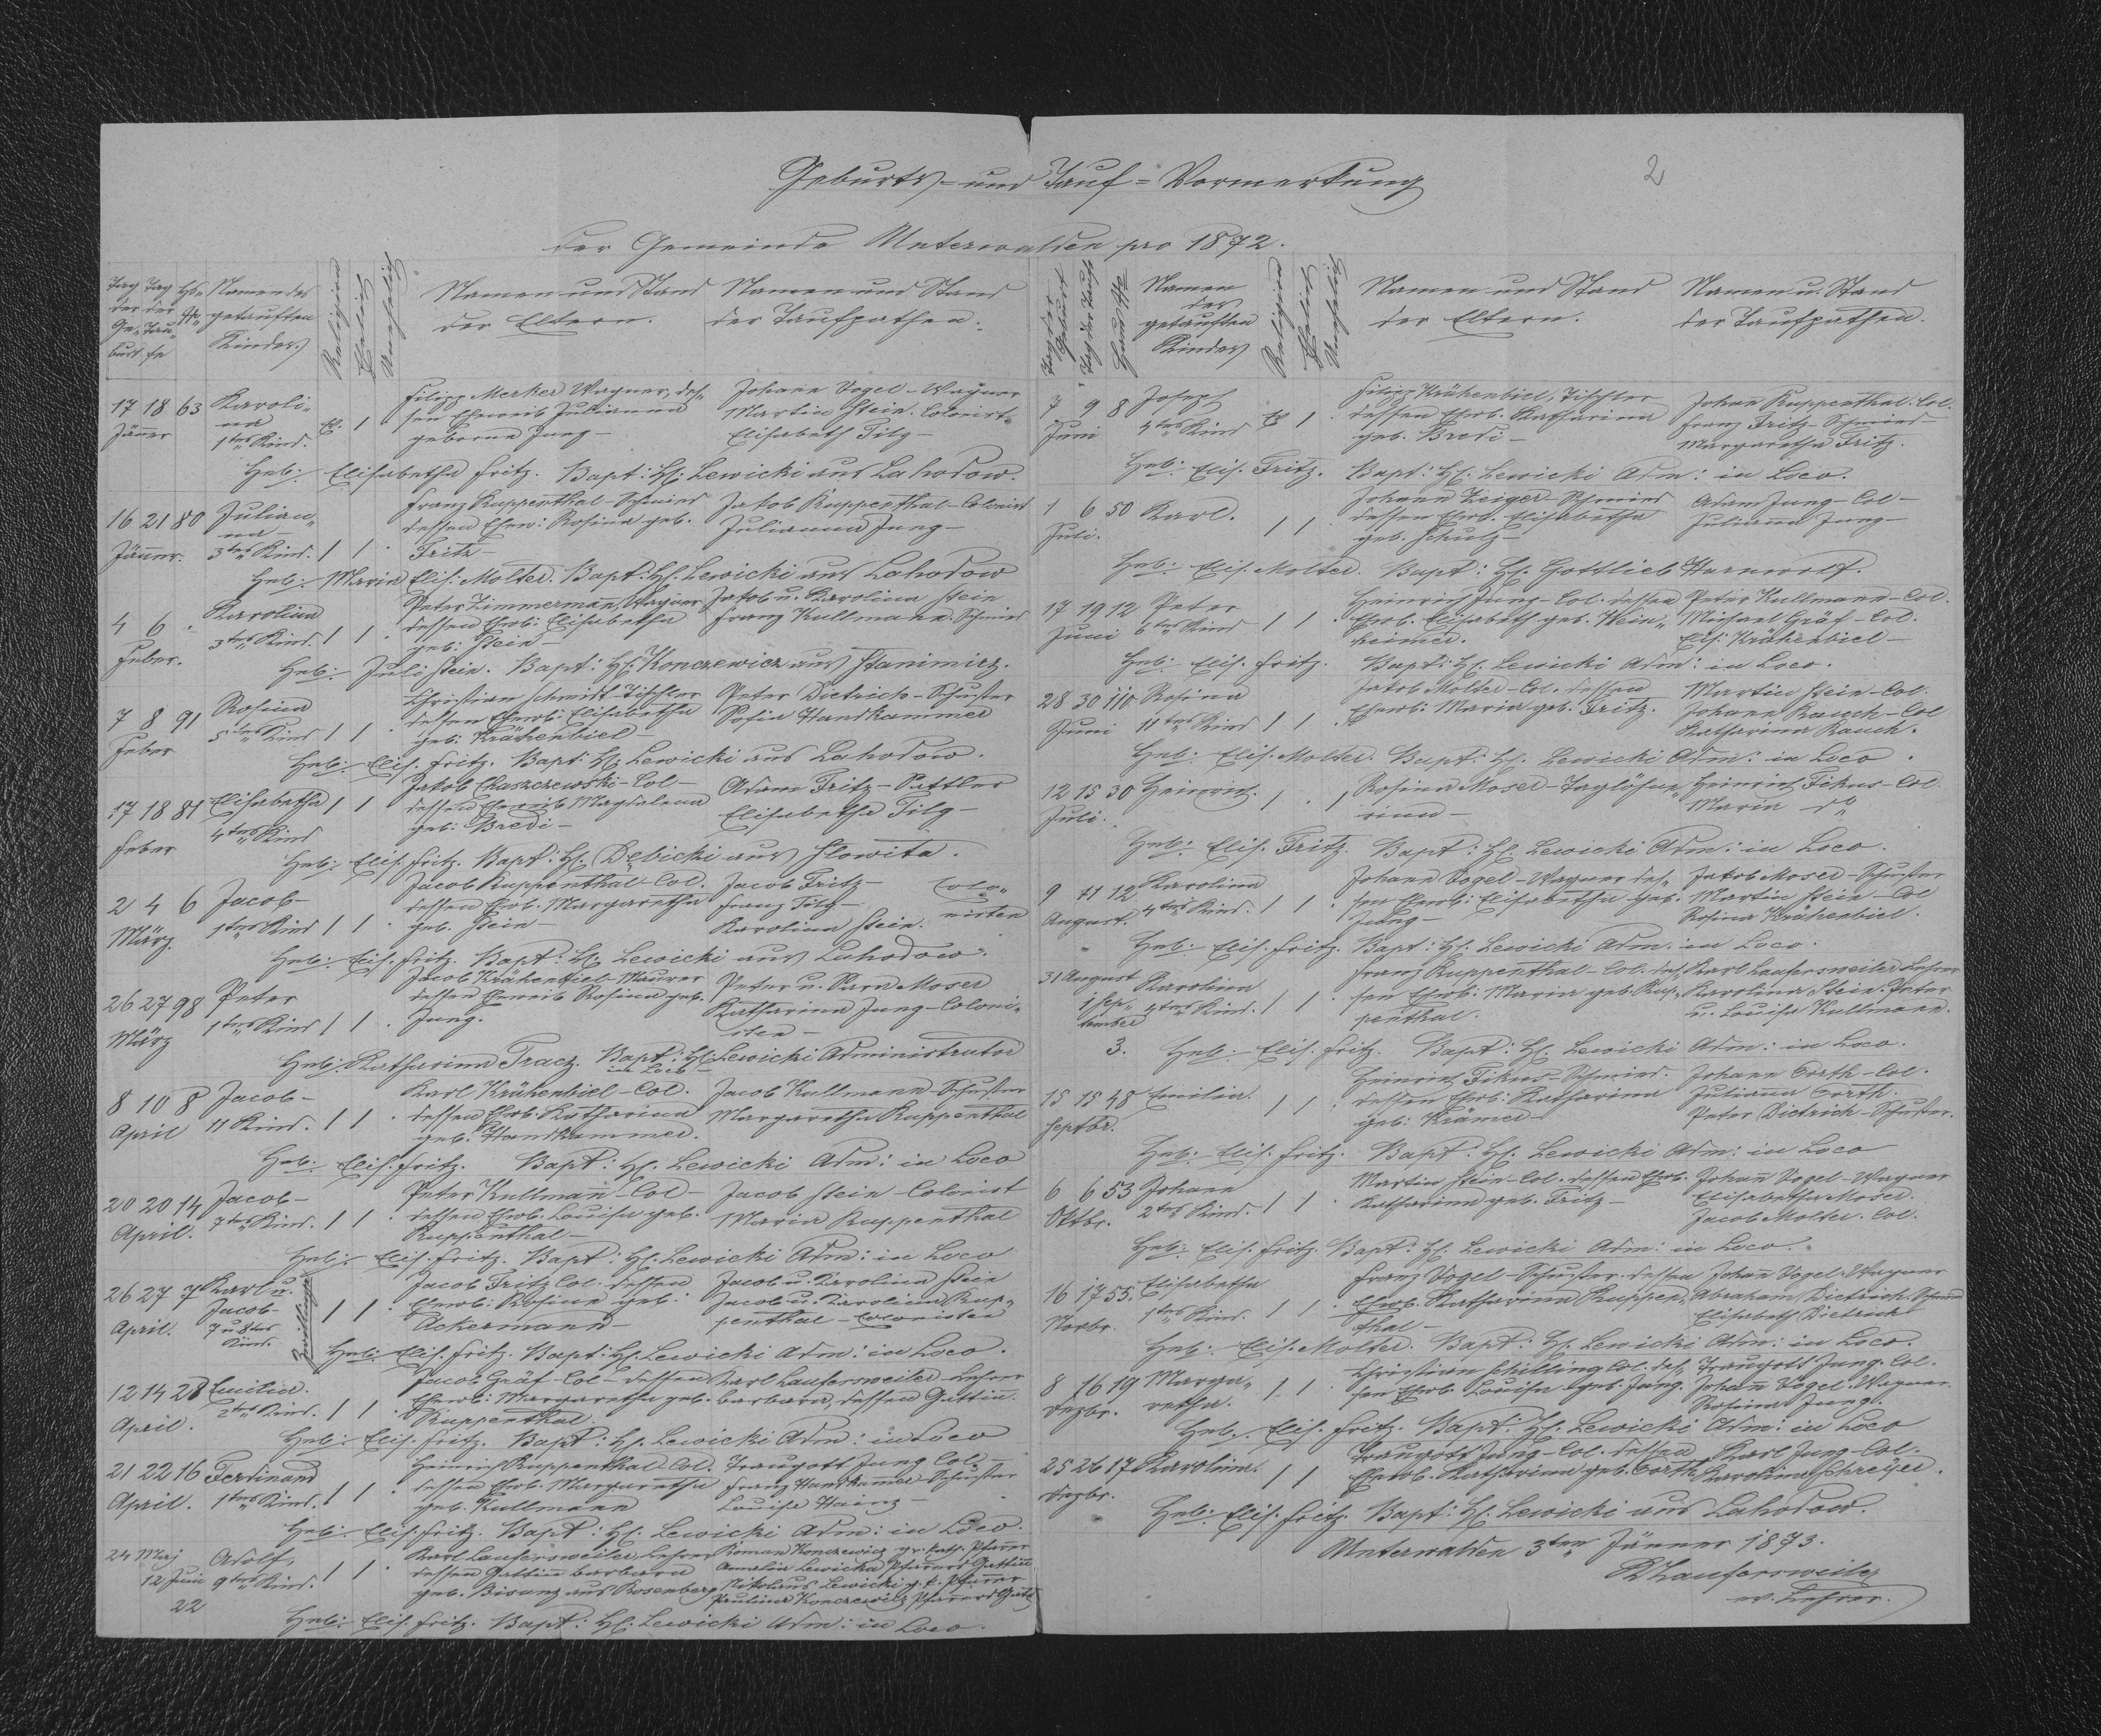 2
Geburts- und Tauf-Vormerkung
der Gemeinde Unterwalden pro 1872.
Tag der Geburt
Tag der Taufe
Namen des getauften Kindes
Religion
Ehelich
Unehelich
Namen und Stand der Eltern.
Namen und Stand der Taufpathen.
17 18 63 Karoli- Filipp Merker Wagner, des- Johann Vogel-Wagner
Jänner na 1tes Kind. 1 sen Eheweib Julianna Martin Stein. Colonist
geborne Jung- Elisabeth Filg-
Heb: Elisabetha Fritz. Bapt: H. Lewicki aus Lahodow.
16 21 80 Julian- Franz Ruppenthal-Schmied Jakob Ruppenthal-Colonist
na- dessen Ehew: Rosina geb. Julianna Jung-
Jänner. 3tes Kind. 1 1 Fritz-
Heb: Maria Elis. Molter. Bapt: H. Lewicki aus Lahodow
4 6 Karolina Peter Zimmermann, Wagner Jakob u. Karolina Stein
3tes Kind. 1 1 dessen Ehwb: Elisabetha Franz Kullmann. Schmied
Feber. geb: Stein-
Heb: Juli Stein. Bapt: H. Konczewicz aus Stanimirz.
7 8 91 Rosina Christian Schmidt-Tischler Peter Dietrich-Schuster
5tes Kind 1 1 dessen Ehewb: Elisabetha Sofia Handkammer
Feber geb: Krähenbiel-
Heb: Elis. Fritz. Bapt: H. Lewicki aus Lahodow.
17 18 81 Elisabetha 1 1 Jakob Chaszczewski-Col- Adam Fritz-Sattler
4tes Kind dessen Eheweib Magdalena Elisabetha Filg-
Feber geb: Bredi-
Heb: Elis. Fritz. Bapt: H. Dębicki aus Slowita.
2 4 6 Jacob- Jacob Ruppenthal-Col. Jacob Fritz- Colo-
1tes Kind 1 1 dessen Ehwb. Margaretha Franz Filg- nisten
März geb. Stein- Karolina Stein.
Heb: Elis. Fritz. Bapt: H. Lewicki aus Lahodow.
26 27 98 Peter Jacob Krähenbiel-Maurer Peter u. Sara Moser
1tes Kind 1 1 dessen Eheweib Rosina geb. Katharina Jung-Coloni-
März Jung. sten-
Heb: Katharina Tracz. Bapt: H. Lewicki Administrator
in Loco-
8 10 8 Jacob- Karl Krähenbiel-Col. Jacob Kullmann-Schuster
April 11 Kind. 1 1 dessen Ehwb. Katharina Margaretha Ruppenthal
geb. Handkammer.
Heb: Elis. Fritz. Bapt: H. Lewicki Adm: in Loco
20 20 14 Jacob- Peter Kullmann-Col- Jacob Stein-Colonist
April. 7tes Kind. 1 1 dessen Ehwb. Louisa geb. Maria Ruppenthal
Ruppenthal-
Heb: Elis. Fritz. Bapt: H. Lewicki Adm: in Loco
26 27 7 Karl u. Zwillinge Jacob Fritz Col. dessen Jacob u. Karolina Stein
Jacob- 1 1 Ehewb: Rosina geb: Jacob u. Karolina Rup-
April. 7 u 8tes Kind. Ackermann- penthal-Colonisten
Heb: Elis. Fritz. Bapt: H. Lewicki Adm: in Loco.
12 14 28 Emilia. Jacob Gräf-Col-dessen Karl Laufersweiler-Lehrer
2tes Kind. 1 1 Ehewb: Margaretha geb. Barbara, dessen Gattin.
April. Ruppenthal.
Heb: Elis. Fritz. Bapt: H. Lewicki Adm: in Loco
21 22 16 Ferdinand Heinrich Ruppenthal Col. Traugott Jung Col-
April. 1tes Kind. 1 1 dessen Ehwb. Margaretha Franz Handkamer-Schuster
geb. Kullmann Louisa Hainz-
Heb: Elis. Fritz. Bapt: H. Lewicki Adm: in Loco.
24 Maj Adolf, Karl Laufersweiler, Lehrer Roman Konczewicz gr. kath. Pfarrer
12 Juni 9tes Kind. 1 1 dessen Gattin Barbara Amalia Lewicka Pfarrers Gattin
22 geb. Bisanz aus Rosenberg Nikolaus Lewicki g. k. Pfarrer
Paulina Konczewicz Pfarrers Gattin
Heb: Elis. Fritz. Bapt: H. Lewicki Adm: in Loco.
Tag der Geburt
Tag der Taufe
Haus №
Namen des getauften Kindes
Religion
Ehelich
Unehelich
Namen und Stand der Eltern.
Namen u. Stand der Taufpathen.
7 9 8 Josef Filipp Krähenbiel, Tischler Johan Ruppenthal. Col.
Juni 4tes Kind 1 dessen Ehwb. Katharina Franz Fritz-Schmied
geb. Bredi- Margaretha Fritz.
Heb: Elis. Fritz. Bapt: H. Lewicki Adm: in Loco.
1 6 50 Karl. Johann Zeiger-Schmied Adam Jung-Col-
Juli. 1 1 dessen Ehwb. Elisabetha Julianna Jung-
geb. Schulz-
Heb: Elis. Molter. Bapt: H. Gottlieb Harwolf.
17 19 12 Peter Heinrich Jung-Col. dessen Peter Kullmann-Col.
Juni 6tes Kind 1 1 Ehwb. Elisabeth geb. Wein- Michael Gräf-Col.
heimer. Elis: Krähenbiel-
Heb: Elis. Fritz. Bapt: H. Lewicki Adm: in Loco.
28 30 110 Rosina Jakob Molter-Col. dessen Martin Stein-Col.
Juni 11tes Kind 1 1 Ehewb: Maria geb. Fritz. Johann Rauch-Col
Katharina Rauch.
Heb: Elis. Molter. Bapt: H. Lewicki Adm: in Loco.
12 15 30 Heinrich. 1 1 Rosina Moser-Taglöhne- Heinrich Fikus-Col.
Juli. rinn- Maria do
Heb: Elis. Fritz. Bapt: H. Lewicki Adm: in Loco.
9 11 12 Karolina Johann Vogel-Wagner des- Jakob Moser-Schuster
August. 4tes Kind. 1 1 sen Ehewb: Elisabetha geb. Martin Stein-Col
Jung- Rosina Krähenbiel.
Heb: Elis. Fritz. Bapt: H. Lewicki Adm. in Loco.
31 August Karolina Franz Ruppenthal-Col. des- Karl Laufersweiler Lehrer
1 Sep- 4tes Kind. 1 1 sen Ehewb: Maria geb. Rup- Karolina Stein. Peter
tember penthal. u. Louisa Kullmann.
3. Heb: Elis. Fritz. Bapt: H. Lewicki Adm: in Loco.
15 15 48 Emilia. Heinrich Fikus-Schmied. Johann Corth-Col.
Septbr. 1 1 dessen Ehwb: Katharina Julianna Corth.
geb: Krämer Peter Dietrich-Schuster.
Heb: Elis. Fritz. Bapt: H. Lewicki Adm: in Loco
6 6 53 Johann Martin Stein-Col. dessen Ehwb. Johann Vogel-Wagner
Oktbr. 2tes Kind. 1 1 Katharina geb. Fritz- Elisabetha Moser.
Jacob Molter. Col.
Heb: Elis. Fritz. Bapt: H. Lewicki Adm: in Loco.
16 17 55. Elisabetha Franz Vogel-Schuster. dessen Johann Vogel-Wagner
Novbr. 1tes Kind. 1 1 Ehwb. Katharina Ruppen- Abraham Dietrich-Schmied
thal- Elisabeth Dietrich
Heb: Elis. Molter. Bapt: H. Lewicki Adm: in Loco.
8 16 19 Marga- Christian Schilling Col. des- Traugott Jung-Col.
Dezbr. retha. 1 1 sen Ehwb. Louisa geb. Jung. Johann Vogel-Wagner.
Rosina Jung.
Heb: Elis. Fritz. Bapt: H. Lewicki Adm: in Loco
25 26 17 Karolina. Traugott Jung-Col. dessen Karl Jung-Col.
Dezbr. 1 1 Ehewb. Katharina geb. Corth Karolina Schreyer.
Heb: Elis. Fritz. Bapt: H. Lewicki aus Lahodow.
Unterwalden 3ten Jänner 1873.
Laufersweiler
ev. Lehrer.